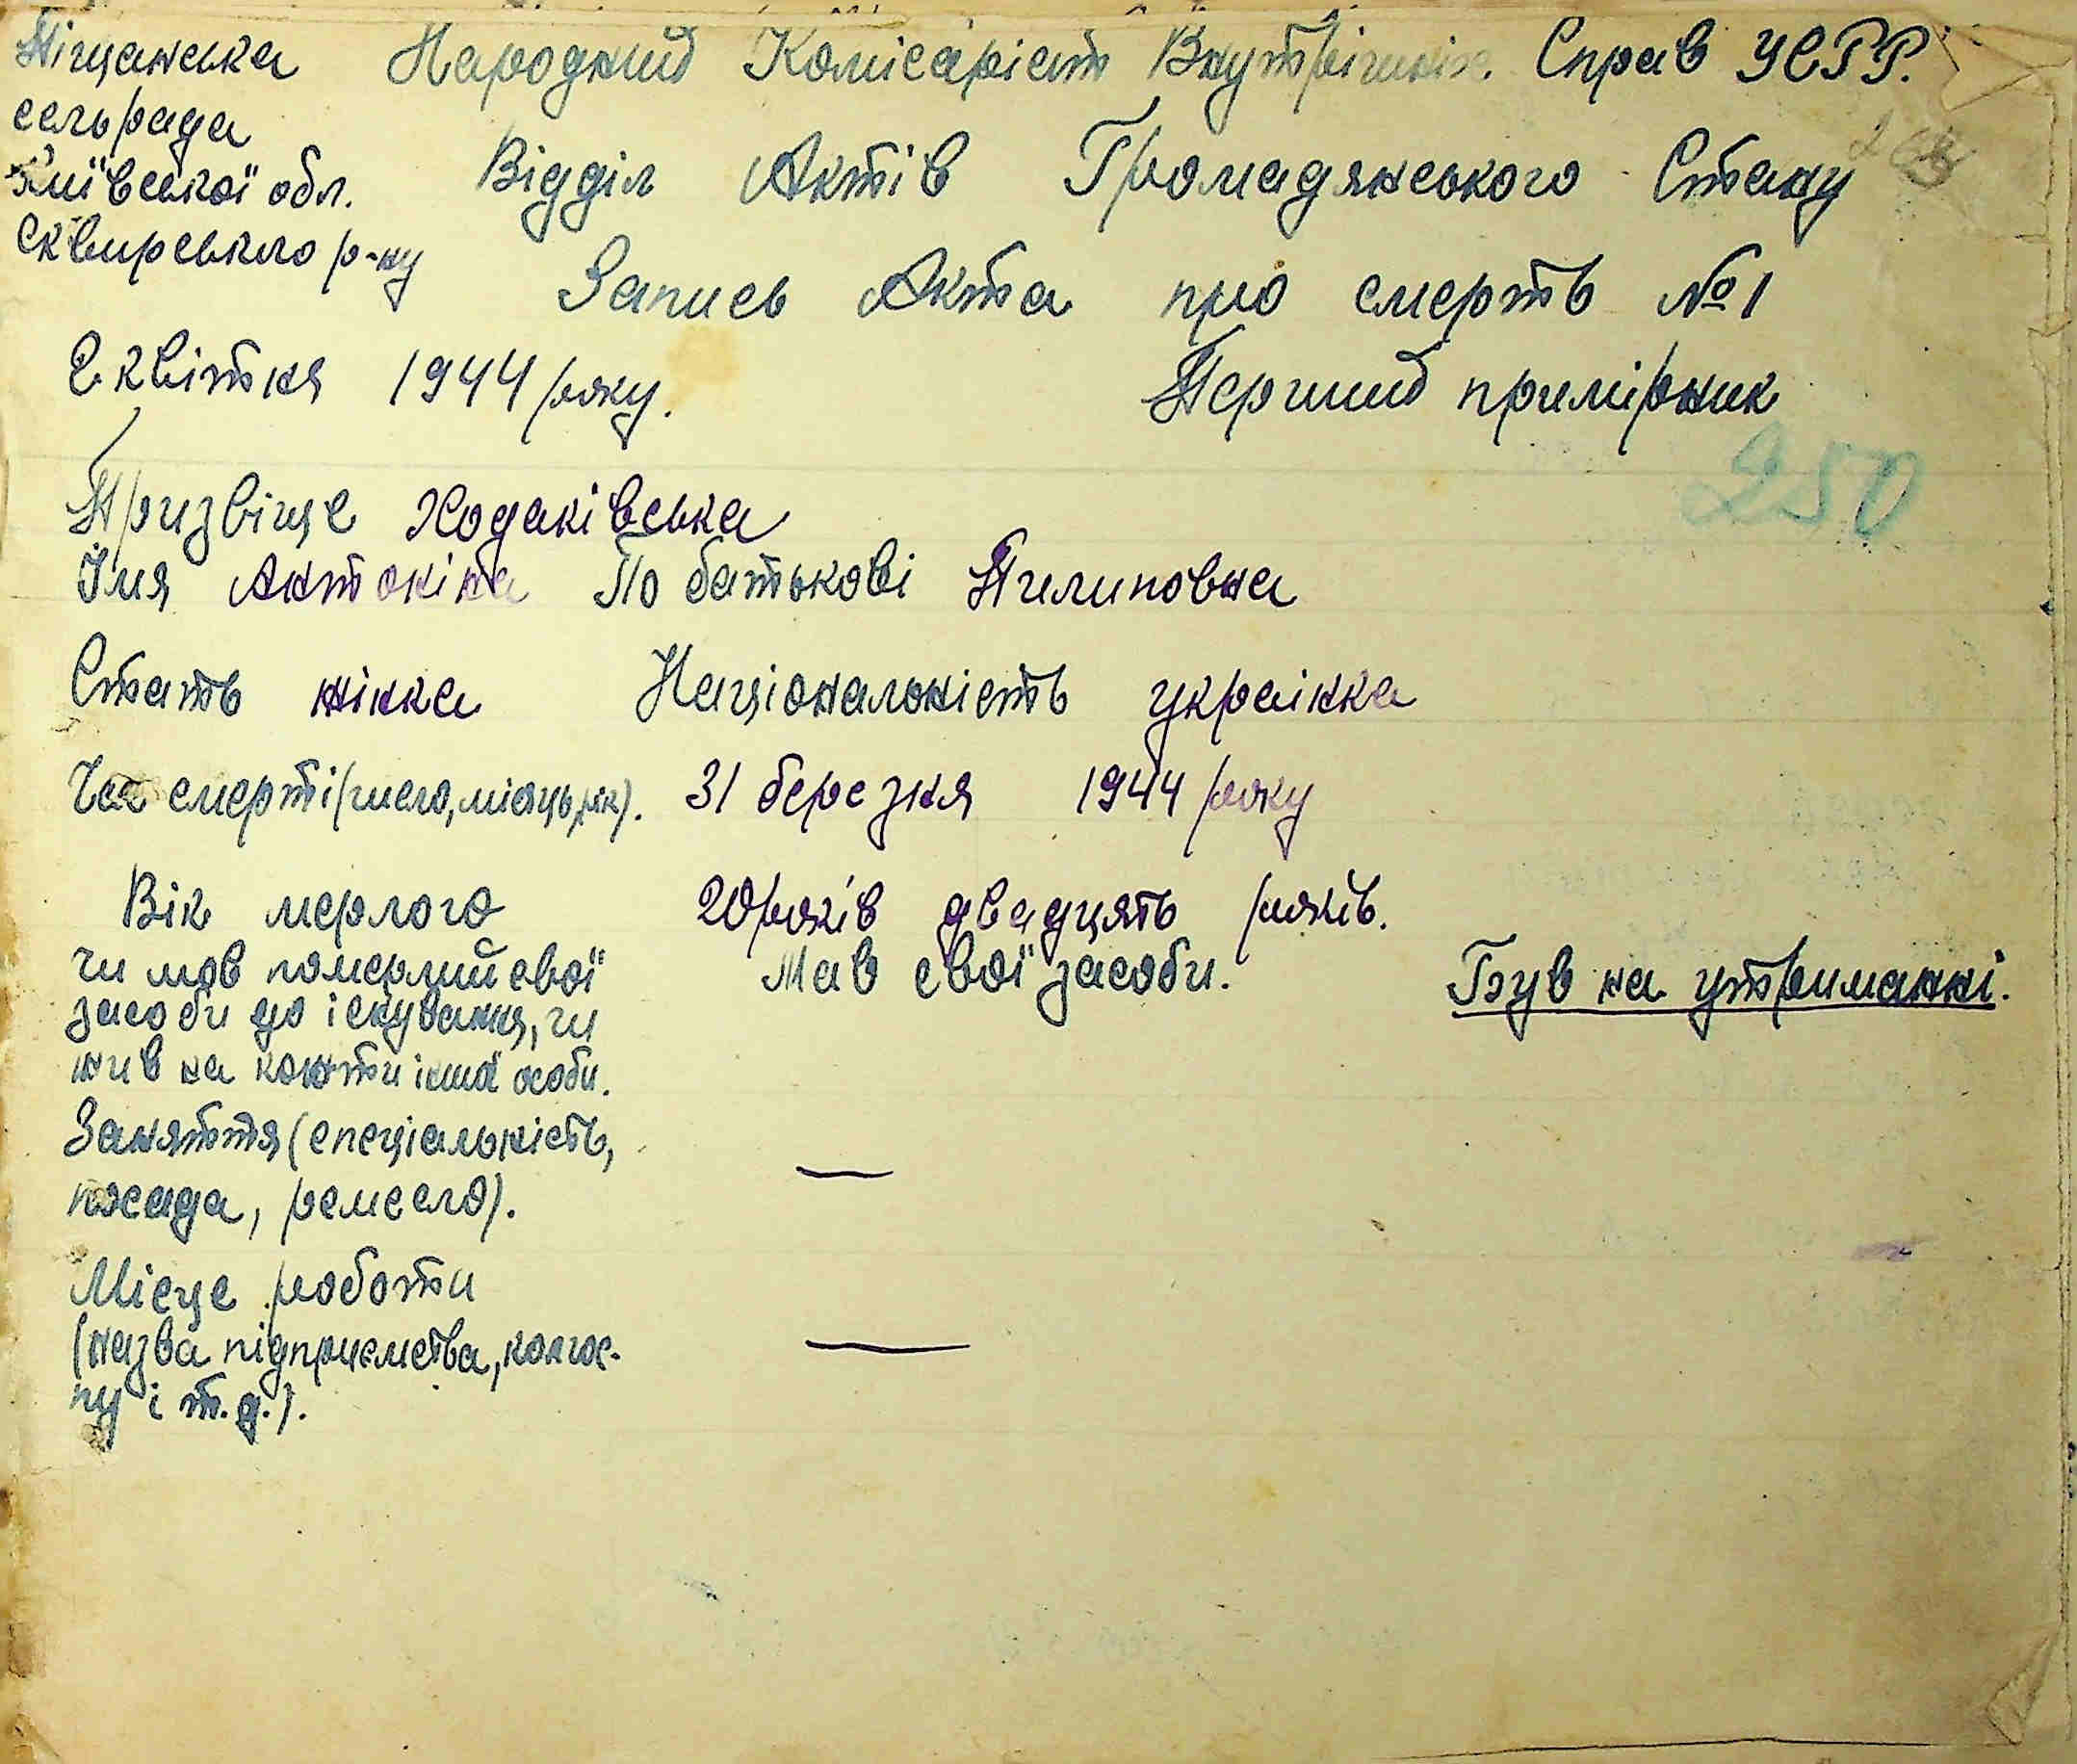 Піщанська Народний Комісаріат Внутрішніх Справ УСРР.
сельрада
Київської обл. Відділ Актів Громадянського Стану
Сквирського р-ну
Запись Акта про смерть №1
2 квітня 1944 року. Перший примірник
250
Призвіще Ходаківська
Імя Антоніна По батькові Пилиповна
Стать жінка Національність українка
Час смерті (число, місяць, рік). 31 березня 1944 року
Вік мерлого 20 років двадцять років.
чи мав померлий свої Мав свої засоби. Був на утриманні.
засоби до існування, чи
жив на кошти іншої особи.
Заняття (спеціальність, —
посада, ремесло).
Місце роботи
(назва підприємства, колгос- —
пу і т.д.).